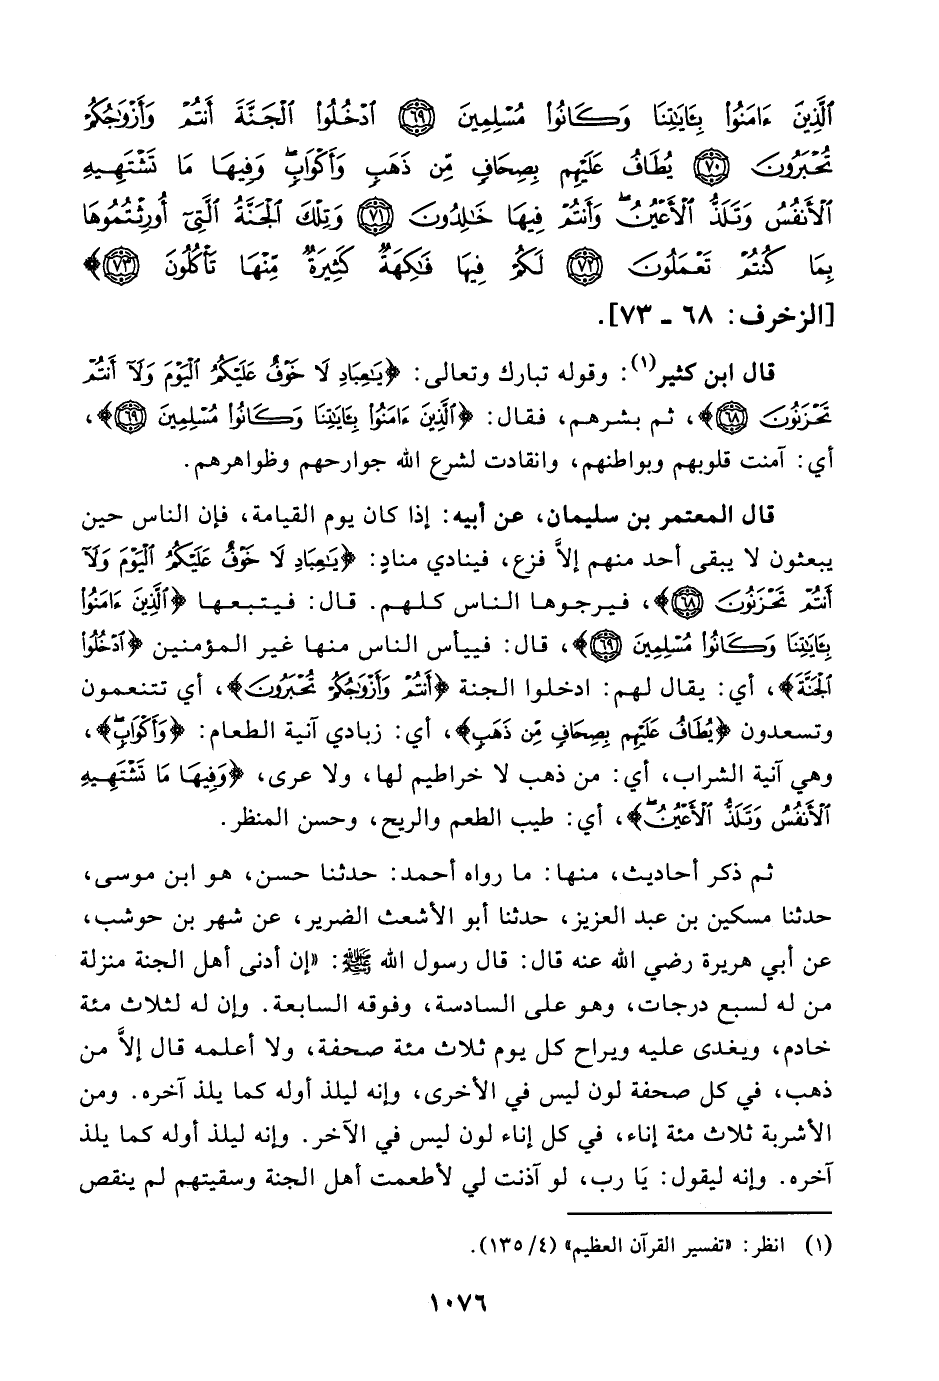 ٱلَّذِينَ ءَامَنُوا۟ بِـَٔايَـٰتِنَا وَكَانُوا۟ مُسْلِمِينَ ﴿٦٩﴾ ٱدْخُلُوا۟ ٱلْجَنَّةَ أَنتُمْ وَأَزْوَٰجُكُمْ
تُحْبَرُونَ ﴿٧٠﴾ يُطَافُ عَلَيْهِم بِصِحَافٍ مِّن ذَهَبٍ وَأَكْوَابٍ ۖ وَفِيهَا مَا تَشْتَهِيهِ
ٱلْأَنفُسُ وَتَلَذُّ ٱلْأَعْيُنُ ۖ وَأَنتُمْ فِيهَا خَـٰلِدُونَ ﴿٧١﴾ وَتِلْكَ ٱلْجَنَّةُ ٱلَّتِىٓ أُورِثْتُمُوهَا
بِمَا كُنتُمْ تَعْمَلُونَ ﴿٧٢﴾ لَكُمْ فِيهَا فَـٰكِهَةٌ كَثِيرَةٌ مِّنْهَا تَأْكُلُونَ ﴿٧٣﴾﴾
[الزخرف: ٦٨ ـ ٧٣].
قال ابن كثير(١): وقوله تبارك وتعالى: ﴿يَـٰعِبَادِ لَا خَوْفٌ عَلَيْكُمُ ٱلْيَوْمَ وَلَآ أَنتُمْ
تَحْزَنُونَ ﴿٦٨﴾﴾، ثم بشرهم، فقال: ﴿ٱلَّذِينَ ءَامَنُوا۟ بِـَٔايَـٰتِنَا وَكَانُوا۟ مُسْلِمِينَ ﴿٦٩﴾﴾،
أي: آمنت قلوبهم وبواطنهم، وانقادت لشرع الله جوارحهم وظواهرهم.
قال المعتمر بن سليمان، عن أبيه: إذا كان يوم القيامة، فإن الناس حين
يبعثون لا يبقى أحد منهم إلاَّ فزع، فينادي منادٍ: ﴿يَـٰعِبَادِ لَا خَوْفٌ عَلَيْكُمُ ٱلْيَوْمَ وَلَآ
أَنتُمْ تَحْزَنُونَ ﴿٦٨﴾﴾، فيرجوها الناس كلهم. قال: فيتبعها ﴿ٱلَّذِينَ ءَامَنُوا۟
بِـَٔايَـٰتِنَا وَكَانُوا۟ مُسْلِمِينَ ﴿٦٩﴾﴾، قال: فييأس الناس منها غير المؤمنين ﴿ٱدْخُلُوا۟
ٱلْجَنَّةَ﴾، أي: يقال لهم: ادخلوا الجنة ﴿أَنتُمْ وَأَزْوَٰجُكُمْ تُحْبَرُونَ﴾، أي تتنعمون
وتسعدون ﴿يُطَافُ عَلَيْهِم بِصِحَافٍ مِّن ذَهَبٍ﴾، أي: زبادي آنية الطعام: ﴿وَأَكْوَابٍ ۖ﴾،
وهي آنية الشراب، أي: من ذهب لا خراطيم لها، ولا عرى، ﴿وَفِيهَا مَا تَشْتَهِيهِ
ٱلْأَنفُسُ وَتَلَذُّ ٱلْأَعْيُنُ ۖ﴾، أي: طيب الطعم والريح، وحسن المنظر.
ثم ذكر أحاديث، منها: ما رواه أحمد: حدثنا حسن، هو ابن موسى،
حدثنا مسكين بن عبد العزيز، حدثنا أبو الأشعث الضرير، عن شهر بن حوشب،
عن أبي هريرة رضي الله عنه قال: قال رسول الله ﷺ: «إن أدنى أهل الجنة منزلة
من له لسبع درجات، وهو على السادسة، وفوقه السابعة. وإن له لثلاث مئة
خادم، ويغدى عليه ويراح كل يوم ثلاث مئة صحفة، ولا أعلمه قال إلاَّ من
ذهب، في كل صحفة لون ليس في الأخرى، وإنه ليلذ أوله كما يلذ آخره. ومن
الأشربة ثلاث مئة إناء، في كل إناء لون ليس في الآخر. وإنه ليلذ أوله كما يلذ
آخره. وإنه ليقول: يَا رب، لو آذنت لي لأطعمت أهل الجنة وسقيتهم لم ينقص
(١) انظر: «تفسير القرآن العظيم» (٤/ ١٣٥).
١٠٧٦